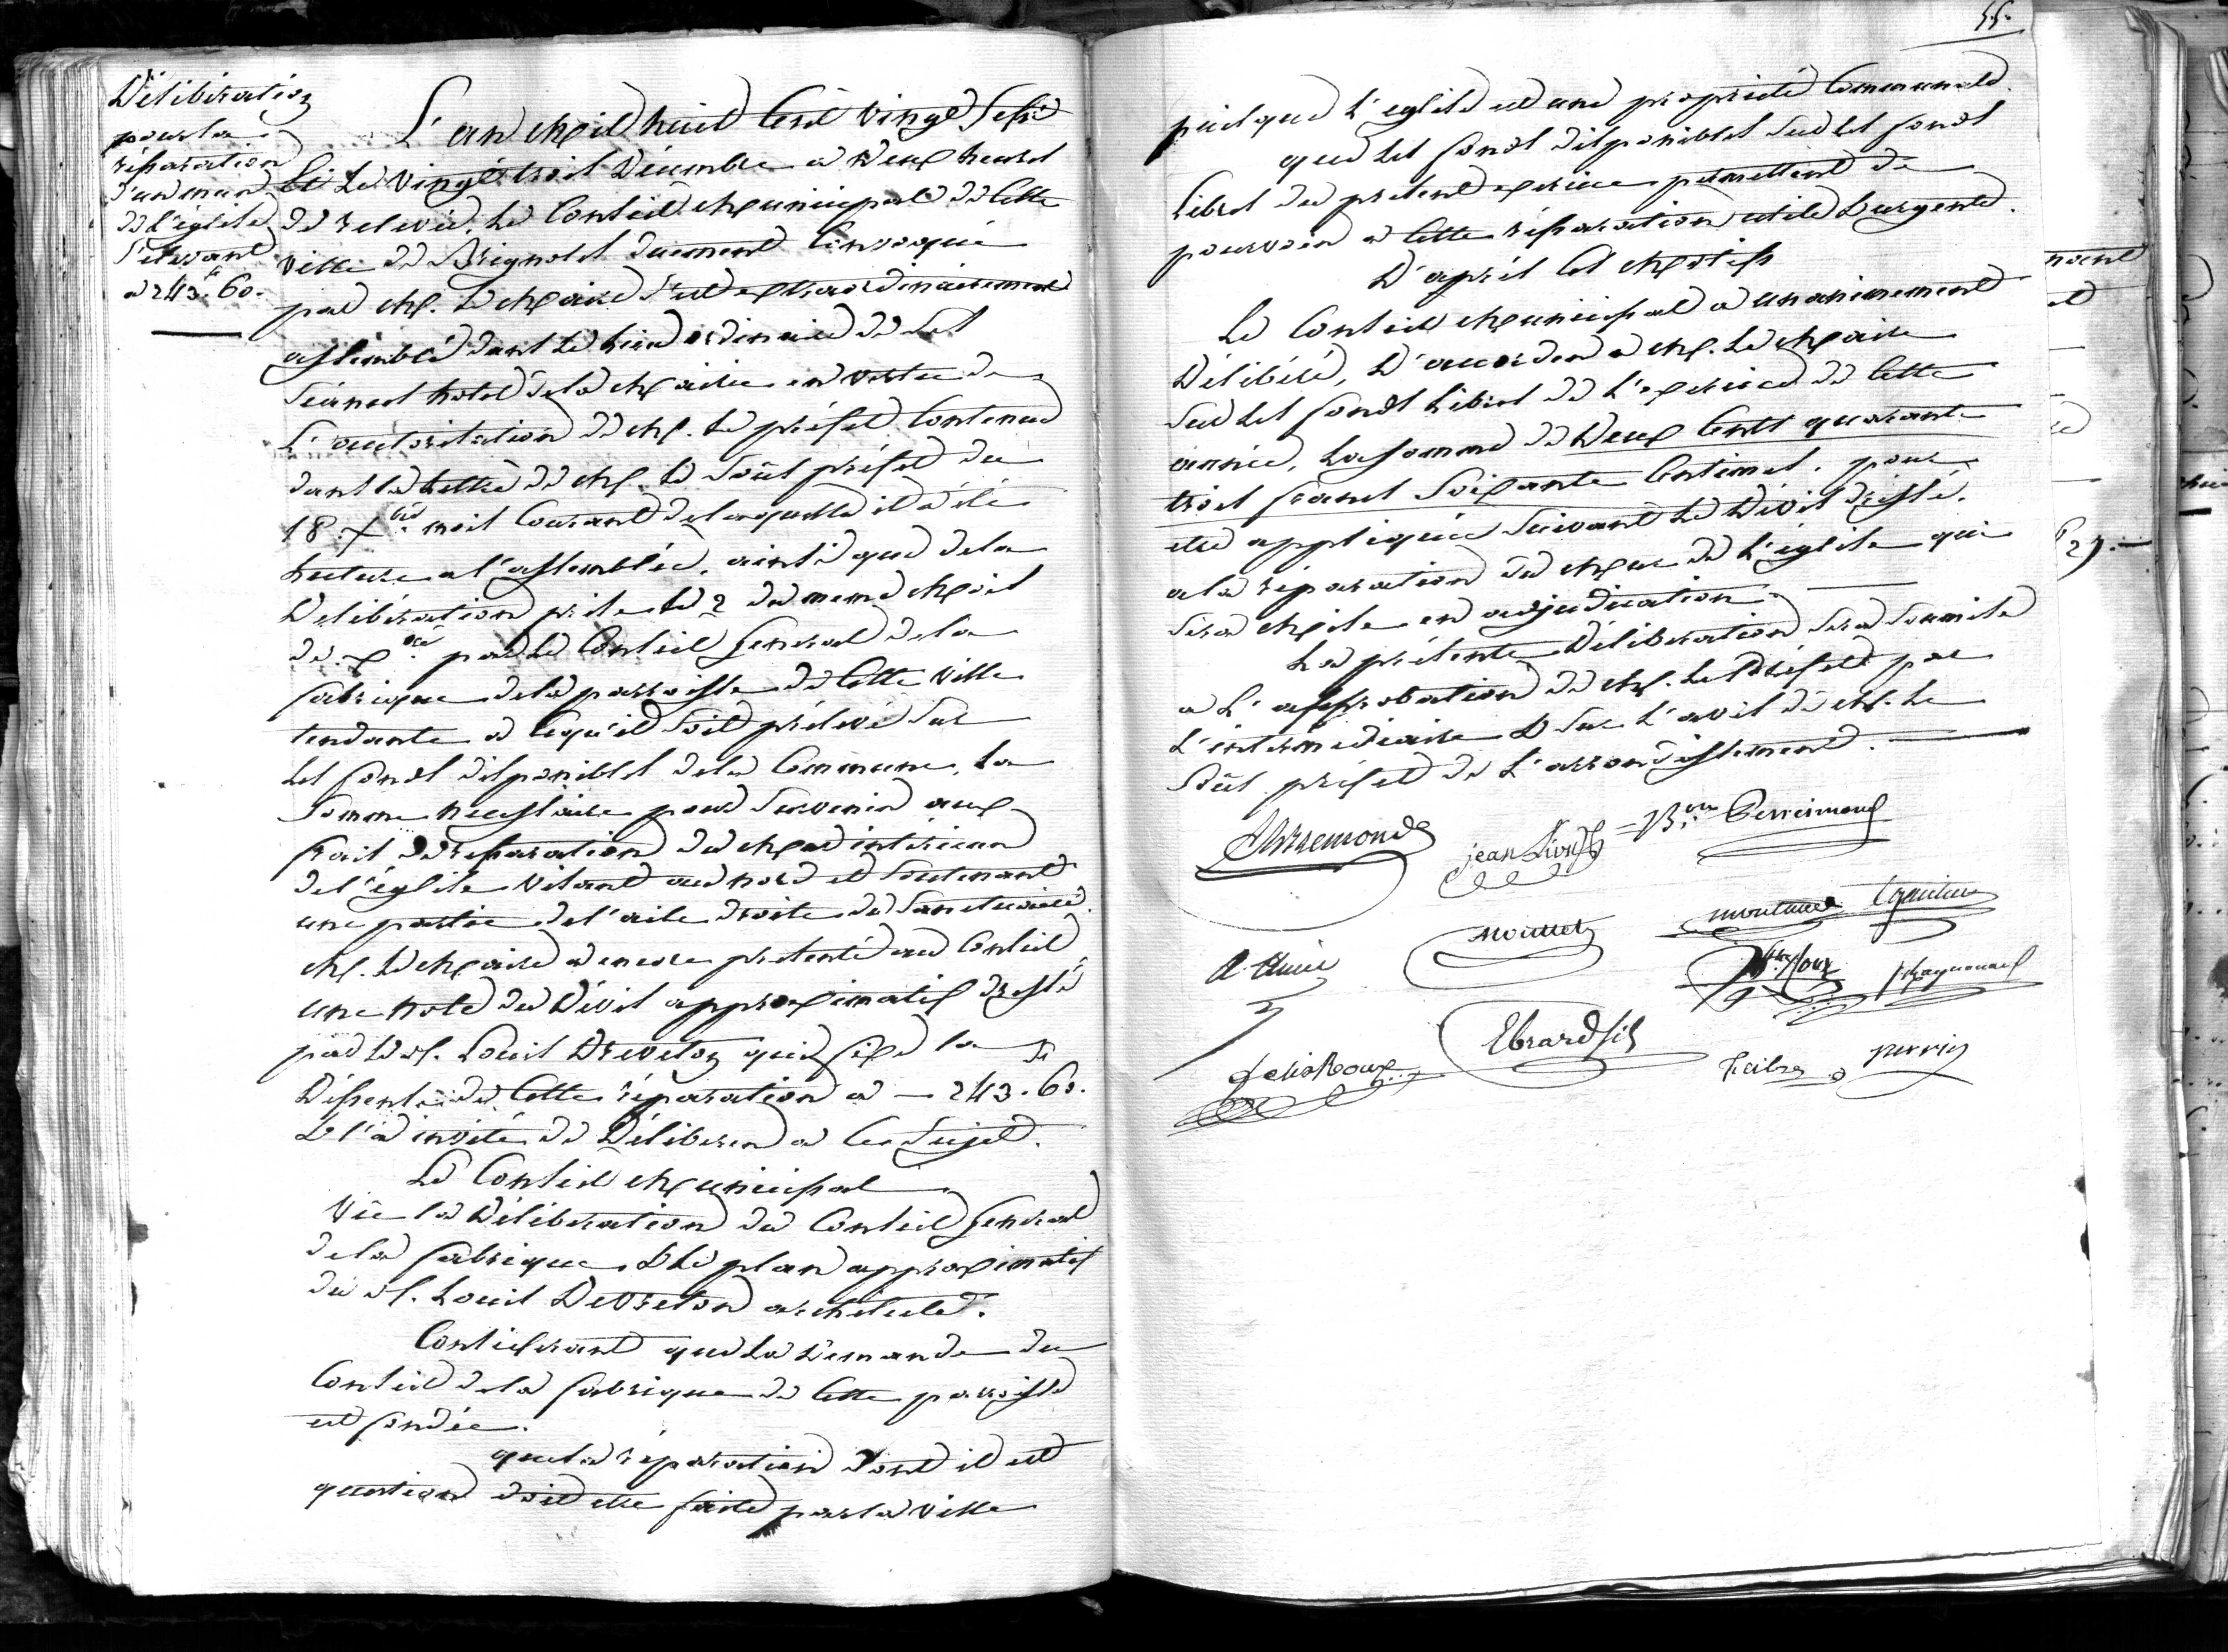 Délibération
pour la
réparation
d'un mur
de l'église
s'élevant
a 243.fr 60.
L'an Mil huit Cent vingt Sept
et le vingt trois Décembre a Deux heures
de relevée, le Conseil Municipal de Cette
ville de Brignoles duement Convoqué
par M. le Maire s'est extraordinairement
assemblé dans le lieu ordinaire de Ses
Séances hotel de la Mairie en vertu de
L'autorisation de M. le préfet Contenue
dans la lettre de M. le Sous préfet du
18 Xbre mois Courant de laquelle il a été
lecture a l'assemblée, ainsi que de la
Délibération prise le 2 du meme Mois
de Xbre par le Conseil General de la
fabrique de la parroisse de Cette ville
tendante a Cequ'il Soit prélevé Sur
les fonds disponibles de la Commune, la
Somme necessaire pour Survenir aux
frais de reparation du Mur intérieur
de l'église visant au nord et Soutenant
une partie de l'aile droite du Sanctuaire.
M. le Maire a encore présenté au Conseil
une note du Dévis approximatif dressé
par le Sr. Louis Devreton qui fixe la
Dépense de Cette réparation a — 243.fr 60.
& l'a invité de Déliberer a Ce Sujet.
Le Conseil Municipal
Vû la Déliberation du Conseil General
de la fabrique & le plan approximatif
du Sr. Louis Devreton architecte.
Considerant que la Demande du
Conseil de la fabrique de Cette parroisse
est fondée.
que la réparation dont il est
question doit etre faite par la ville
55.
puisque L'eglise est une propriété Communale.
que les fonds disponibles Sur les fonds
Libres du present exercice permettent de
pourvoir a Cette réparation utile & urgente.
D'aprés Ces Motifs
Le Conseil Municipal a unanimement
Délibéré, D'accorder a M. le Maire
Sur les fonds Libres de L'exercice de Cette
année, la somme de Deux Cents quarante
trois francs Soixante Centimes, pour
etre appliquée Suivant le Dévis dressé.
a la réparation du Mur de L'église qui
Sera Mise en adjudication.
La présente Délibération Sera Soumise
a L'approbation de M. le Préfet par
L'intermédiaire & Sur L'avis de M. le
Sous préfet de L'arrondissement.
jean Lions = Bon Perrimond
Ebrard fils
felix Roux perrin